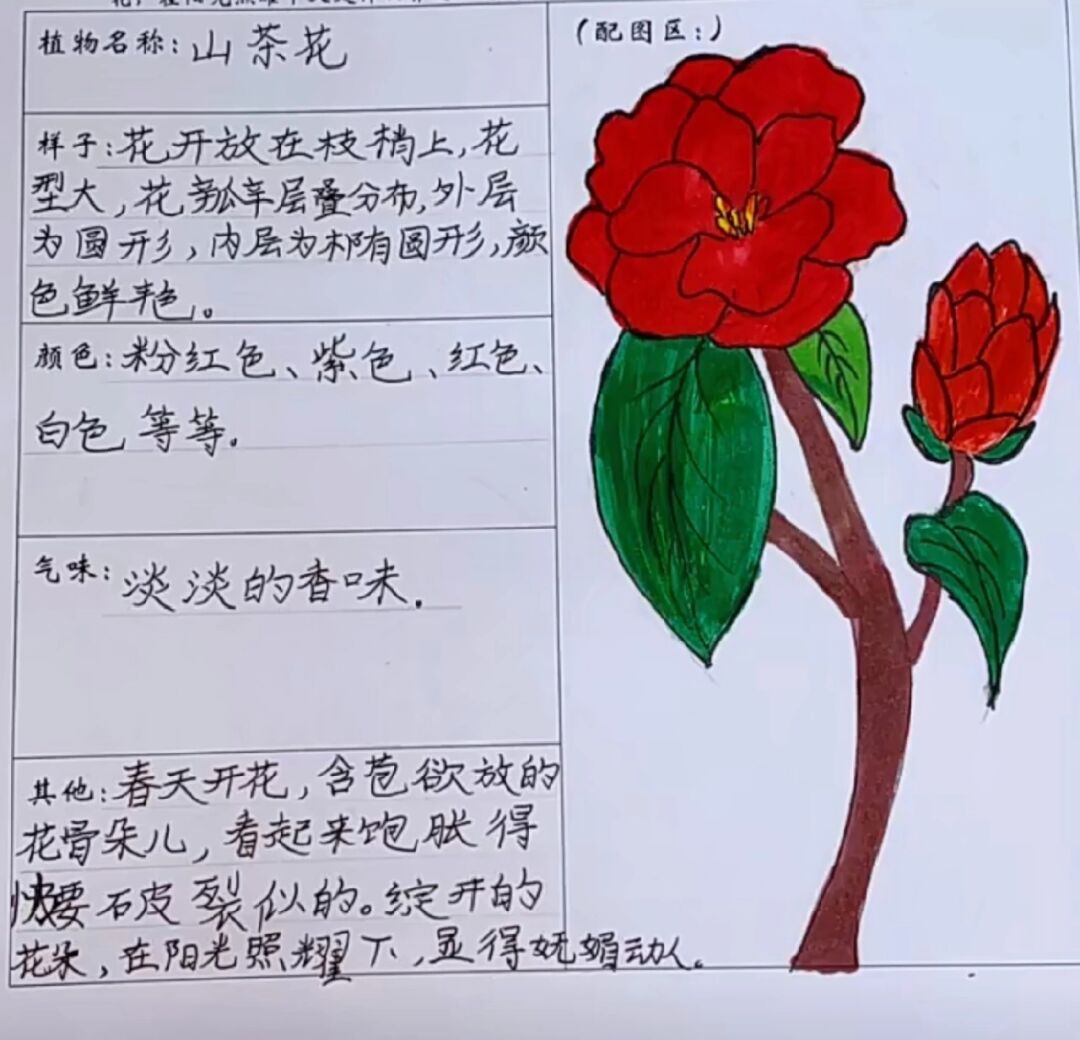 植物名称：山茶花
（配图区：）
样子：花开放在枝梢上，花
型大，花瓣层叠分布，外层
为圆形，内层为椭圆形，颜
色鲜艳。
颜色：粉红色、紫色、红色、
白色等等。
气味：淡淡的香味．
其他：春天开花，含苞欲放的
花骨朵儿，看起来饱胀得
快要破裂似的。绽开的
花朵，在阳光照耀下，显得妩媚动人。